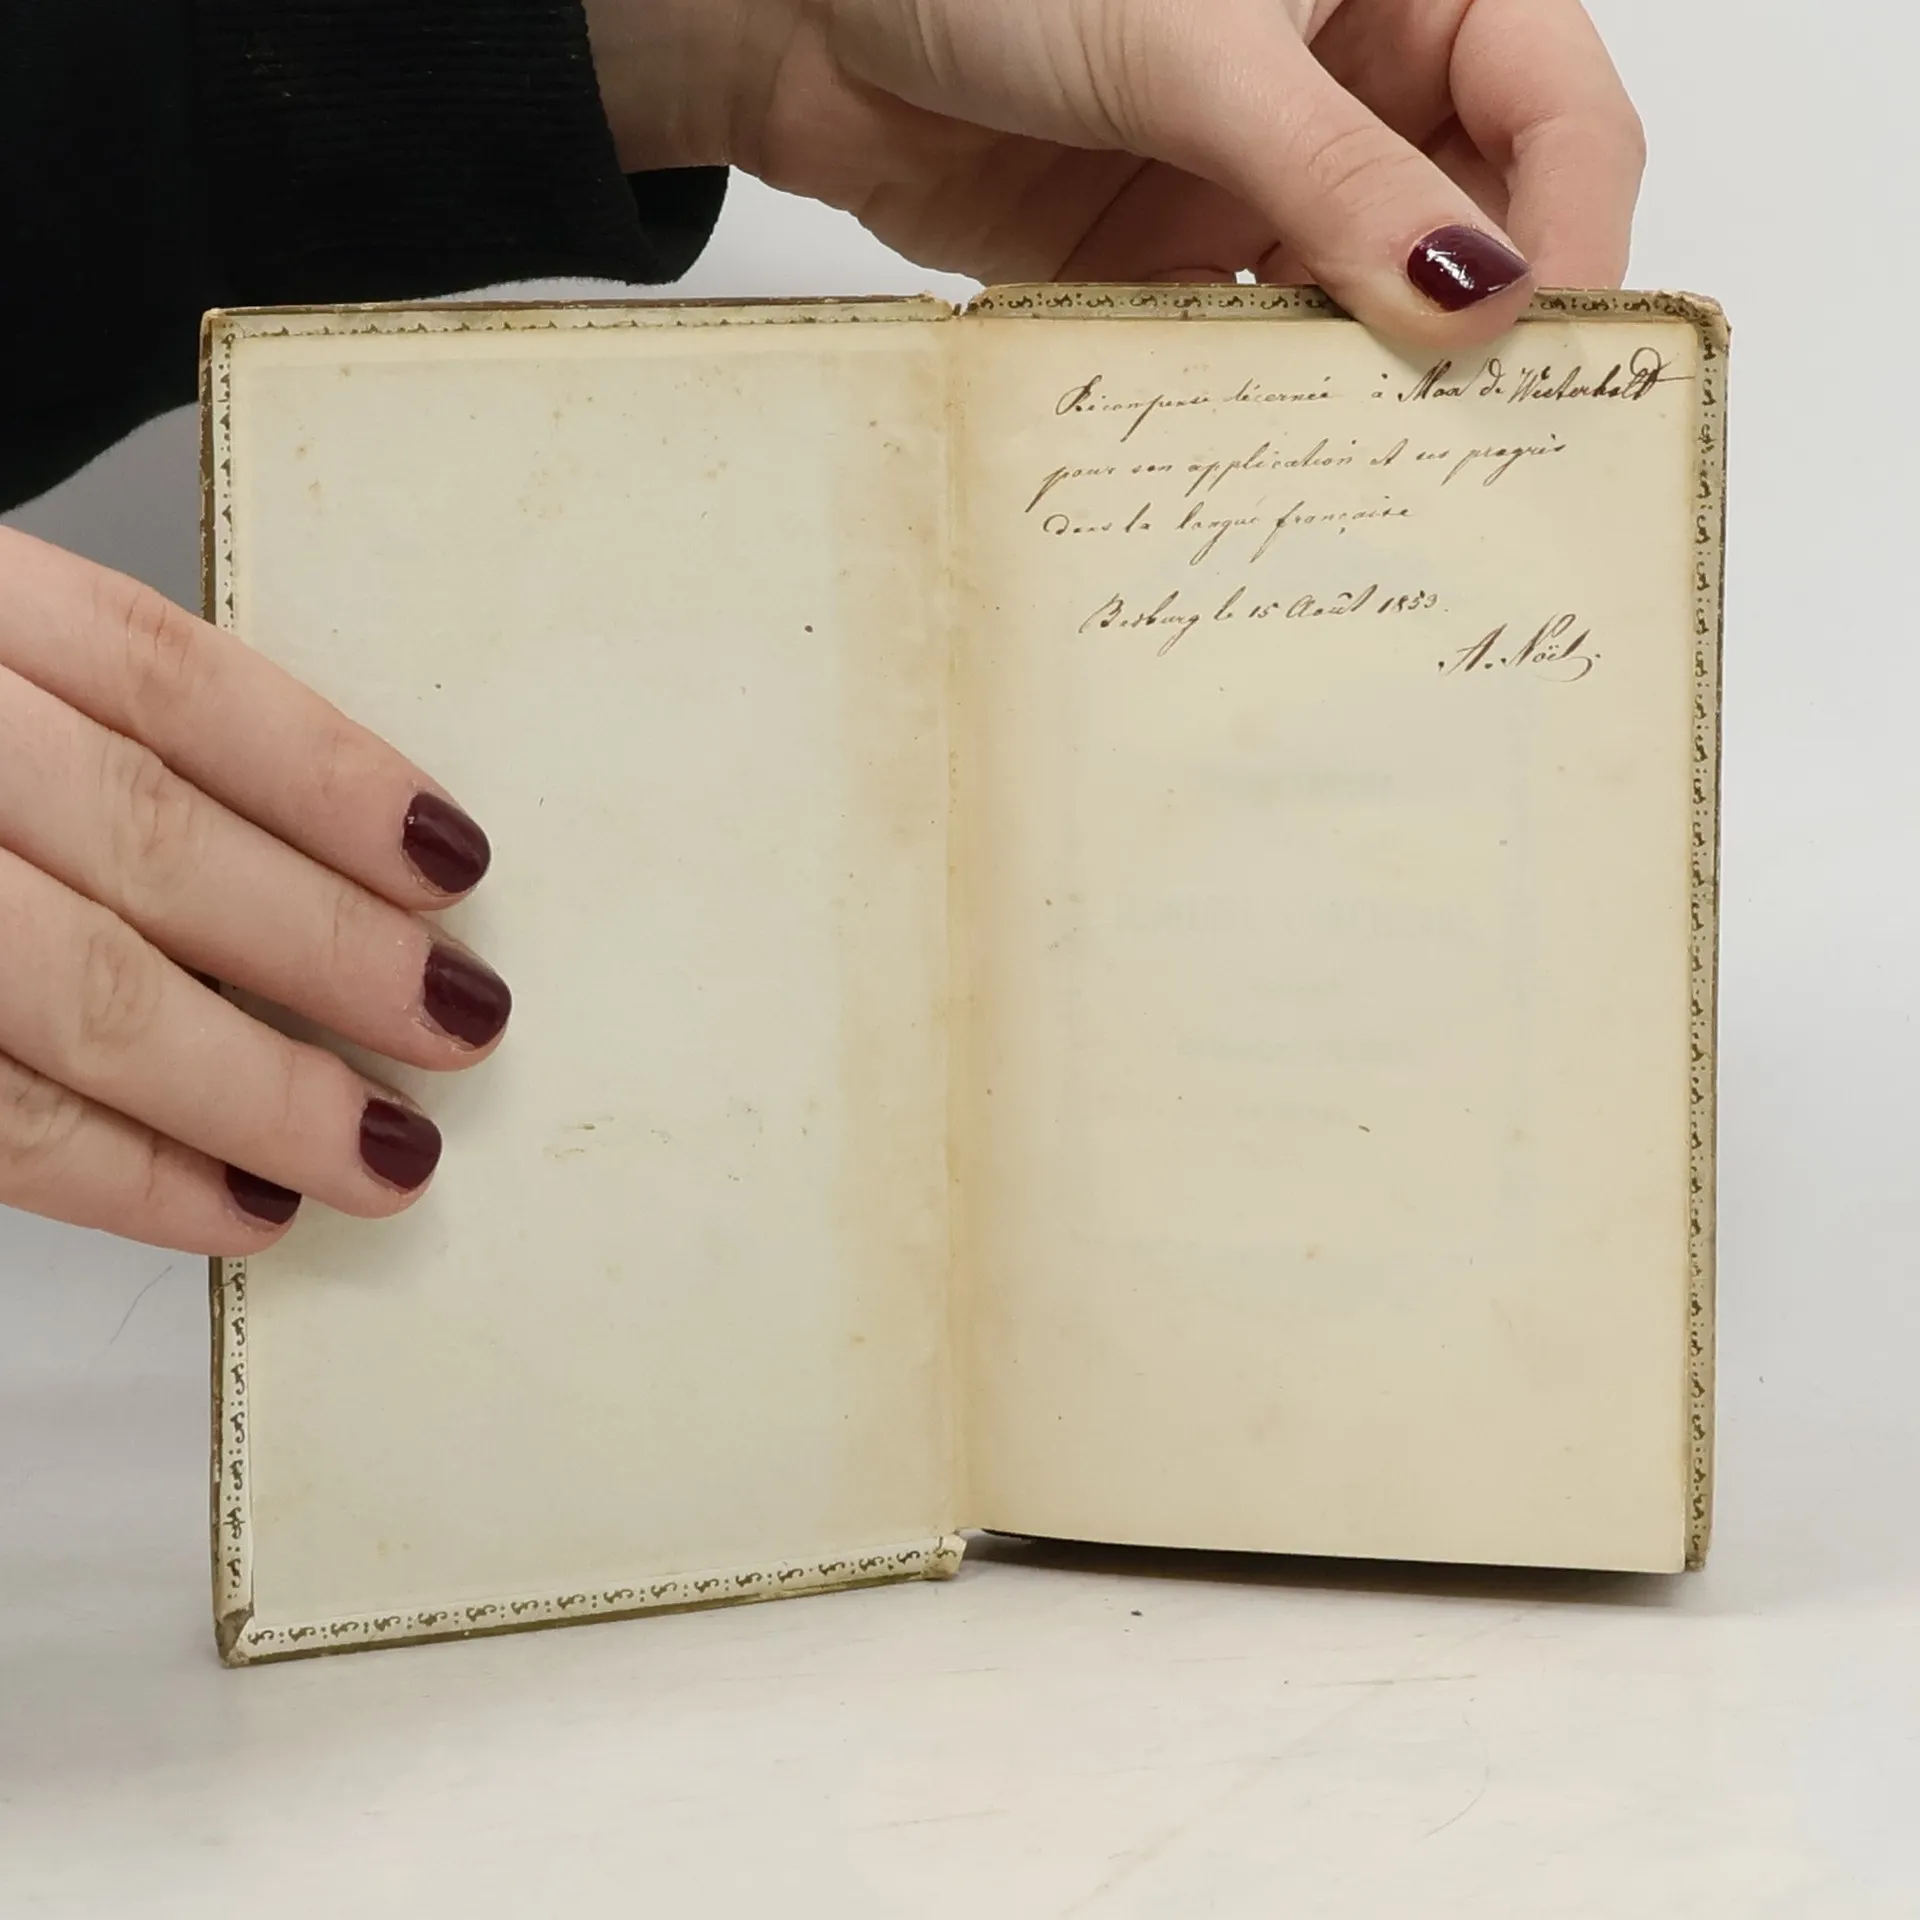 Récompense décernée à Max de Westerholt
pour son application et ses progrès
dans la langue française
le 15 Août 1853.
A. Noël.